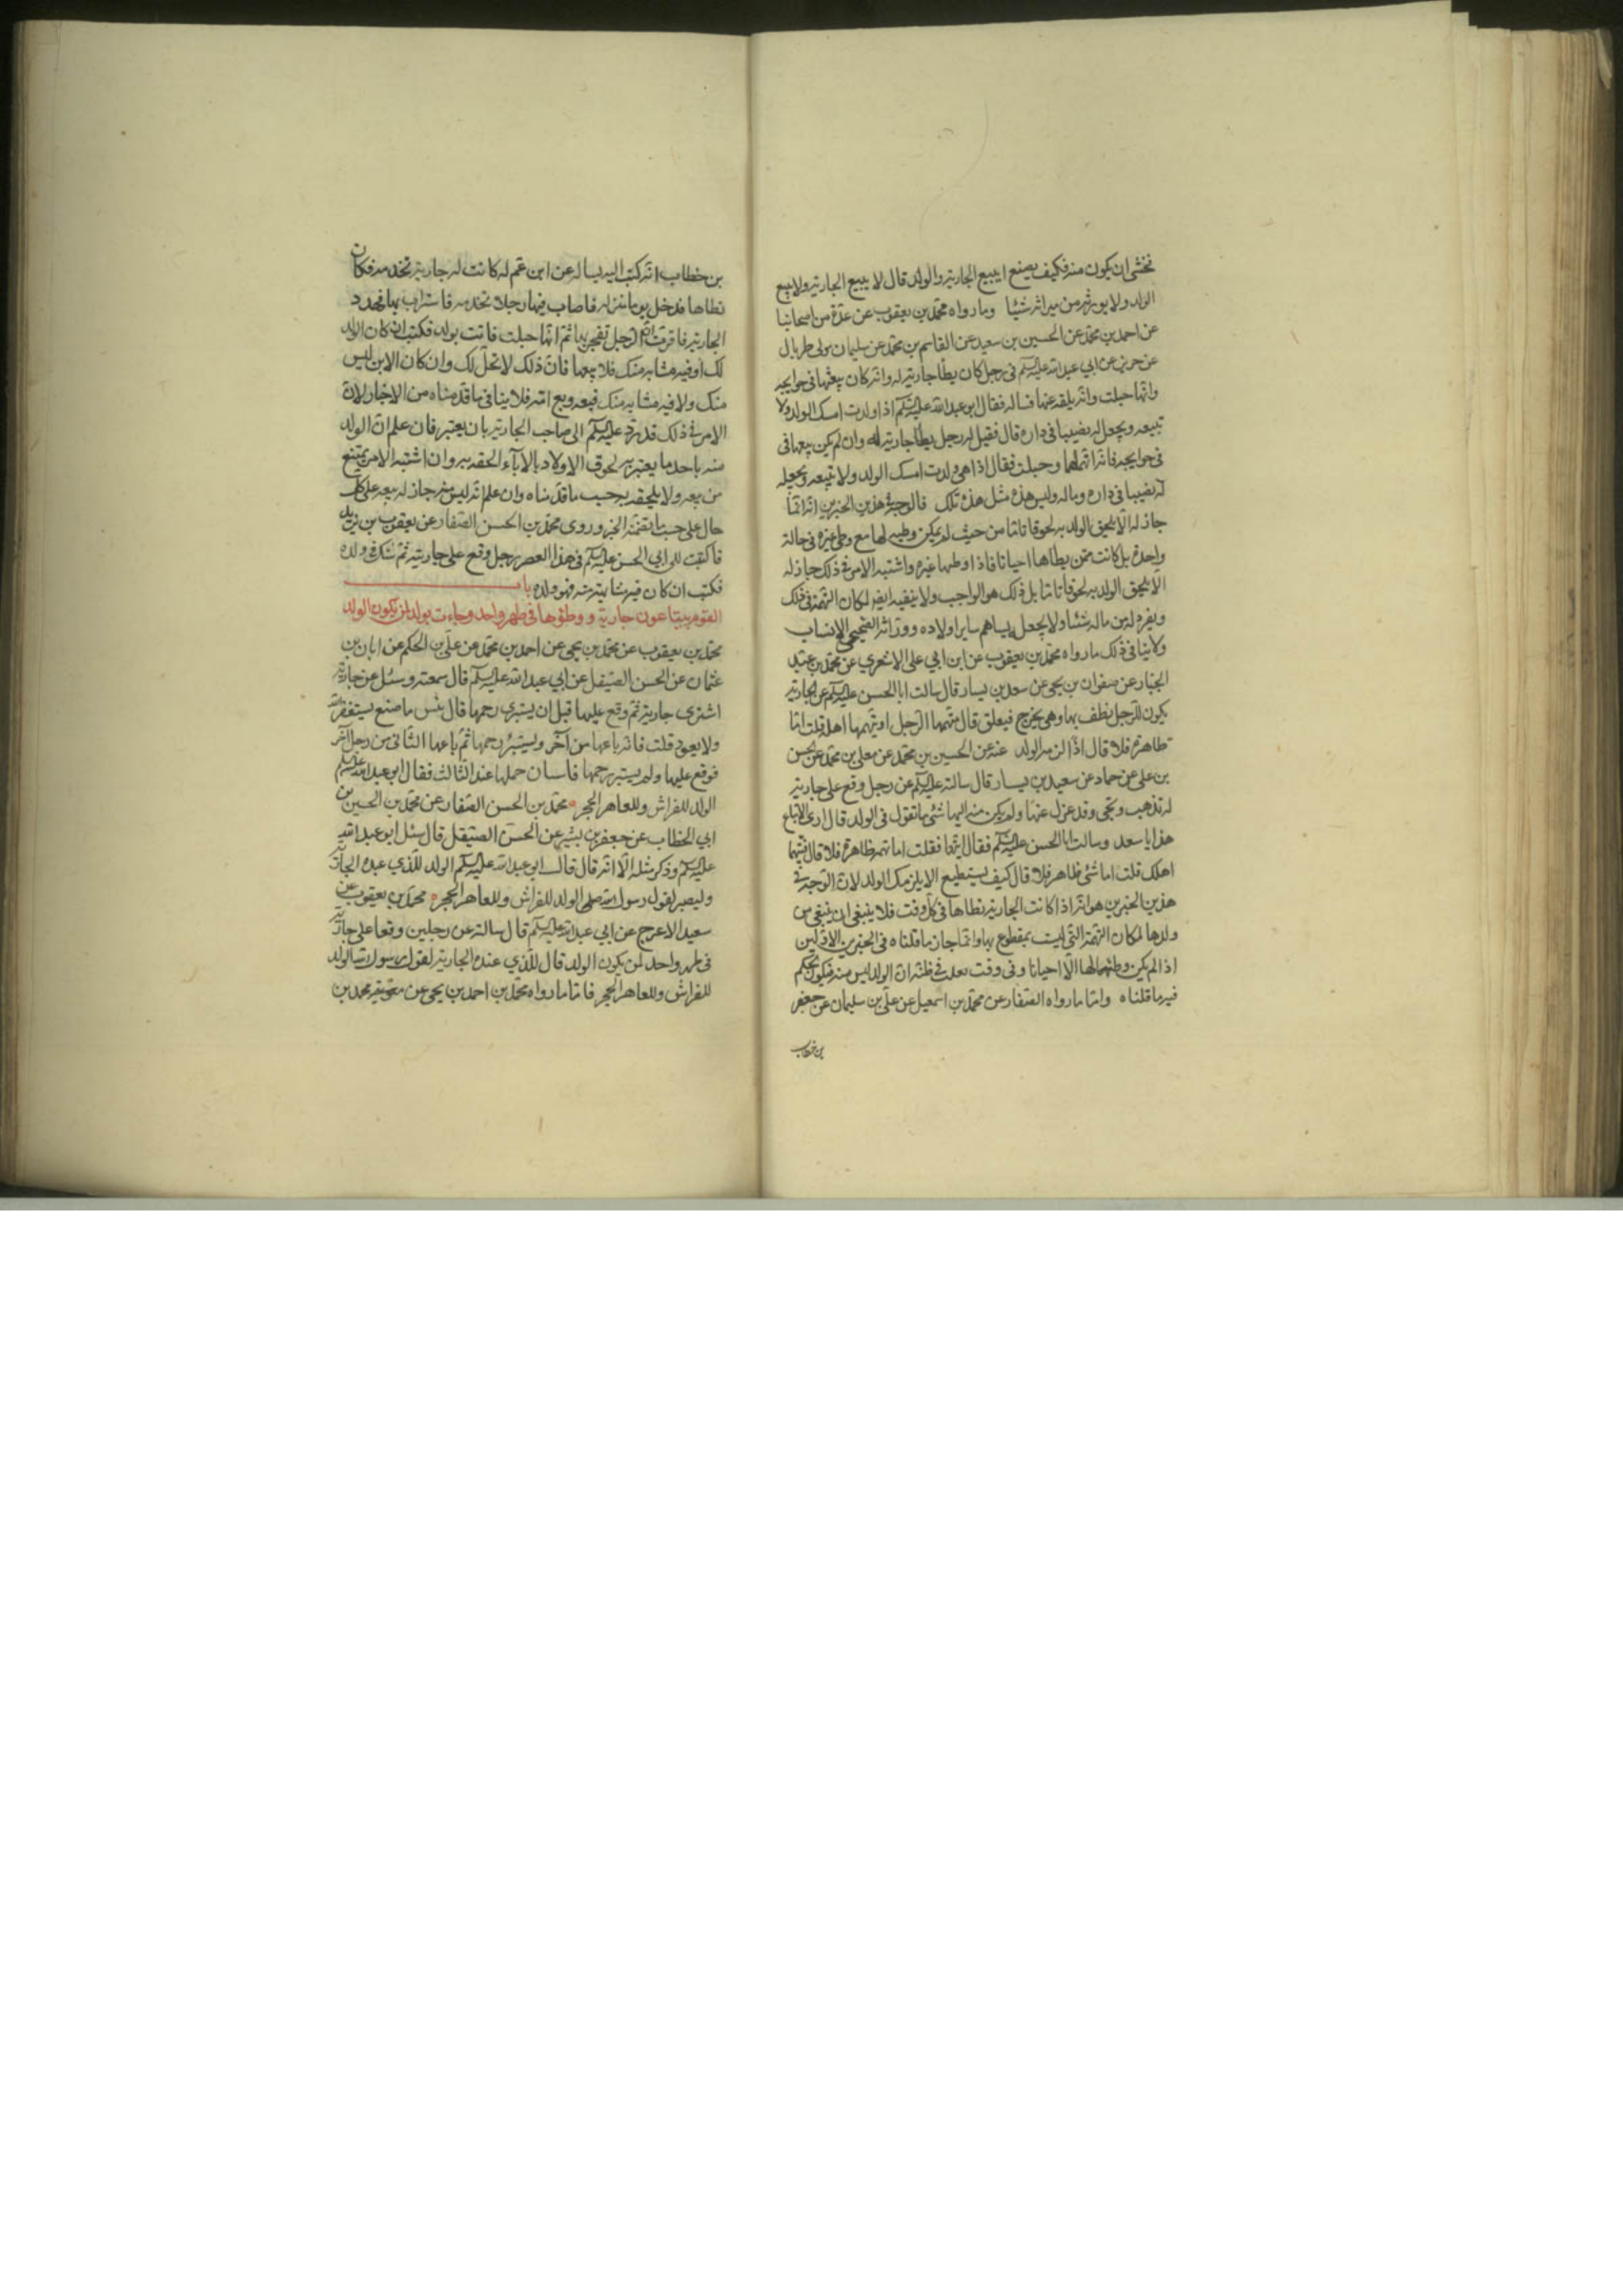 نخشى ان يكون منه فكيف يصنع ايبيع الجارية والولد قال لا يبيع الجارية ولا يبيع
الولد ولا يورثه من ميراثه شيئا وما رواه محمد بن يعقوب عن عدة من اصحابنا
عن احمد بن محمد عن الحسين بن سعيد عن القاسم بن محمد عن سليمان مولى طربال
عن حريز عن ابي عبد الله عليه السلام في رجل كان يطأ جارية له وانه كان يبعثها في حوايجه
وانها حبلت وانه بلغه عنها فساله فقال ابو عبد الله عليه السلام اذا ولدت امسك الولد ولا
تبيعه ويجعل له نصيبا في داره قال فقيل له رجل يطأ جارية له وان لم يكن يبعثها في
في حوايجه فانه اتهمها وحبلت فقال اذا هي ولدت امسك الولد ولا تبيعه ويجعل
له نصيبا في داره وماله وليس هذه مثل هذه تلك فالوجه في هذين الخبرين انه انما
جاز له الا يلحق الولد به لحوقا تاما من حيث لم يكن وطيه لها مع وطي غيره في حالة
واحدة بل كانت ممن يطاها احيانا فاذا وطيها غيره واشتبه الامر في ذلك جاز له
الا يلحق الولد به لحوقا تاما بل ذلك هو الواجب ولا ينفيه ايضا لمكان التهمة في ذلك
ويفرد له من ماله شيئا ولا يجعل يساهم ساير اولاده ووراثه الصحيحي الانساب
ولا ينافي ذلك ما رواه محمد بن يعقوب عن ابن ابي علي الاشعري عن محمد بن عبد
الجبار عن صفوان بن يحيى عن سعد بن يسار قال سالت ابا الحسن عليه السلام عن الجارية
يكون للرجل يطف بها وهي يخرج فيعلق قال يتهمها الرجل او يتهمها اهله قلت اما
ظاهرة فلا قال اذا لزمه الولد عنه عن الحسين بن محمد عن معلى بن محمد عن الحسن
بن علي عن حماد عن سعيد بن يسار قال سالته عليه السلام عن رجل وقع على جارية
له تذهب وتجي وقد عزل عنها ولم يكن منه اليها شئ ما تقول في الولد قال ارى الا يباع
هذا يا سعد وسالت ابا الحسن عليه السلام فقال ايتهمها فقلت اما تهمة ظاهرة فلا قال فيتهمها
اهلك قلت اما شئ ظاهر فلا قال كيف يستطيع الا يلزمك الولد لان الوجه في
هذين الخبرين هو انه اذا كانت الجارية يطاها في كل وقت فلا ينبغي ان ينتفي من
ولدها لمكان التهمة التي ليست بمقطوع بها وانما جاز ما قلناه في الخبرين الاولين
اذا لم يكن وطيه لها الا احيانا وفي وقت بعد في ظنه ان الولد ليس منه فيكون الحكم
فيه ما قلناه واما ما رواه الصفار عن محمد بن اسمعيل عن علي بن سليمان عن جعفر
بن خطاب
بن خطاب انه كتب اليه يساله عن ابن عم له كانت له جارية تخدمه فكان
يطاها فدخل يوما منزله فاصاب فيها رجلا تخدمه فاستراب بها فهدد
الجارية فاقرت ان الرجل تفجر بها ثم انها حبلت فاتت بولد فكتب ان كان الولد
لك او فيه مشابه منك فلا يبعهما فان ذلك لا تحل لك وان كان الابن ليس
منك ولا فيه مشابه منك فبعه وبع امه فلا ينافي ما قدمناه من الاخبار لان
الامر في ذلك قد رد عليه السلام الى صاحب الجارية بان يعتبر فان علم ان الولد
منه باحد ما يعتبر به لحوق الاولاد بالآباء الحقه به وان اشتبه الامر يمتنع
من بيعه ولا يلحقه به حسب ما قدمناه وان علم انه ليس منه جاز له بيعه على كل
حال على حسب ما تضمنه الخبر وروى محمد بن الحسن الصفار عن يعقوب بن يزيد
قا كتبت الى ابي الحسن عليه السلام في هذا العصر رجل وقع على جاريته ثم شك في ولده
فكتب ان كان فيه مشابهة منه فهو ولده باب
القوم يبتاعون جارية ووطؤها في طهر واحد وجاءت بولد لمن يكون الولد
محمد بن يعقوب عن محمد بن يحيى عن احمد بن محمد عن علي بن الحكم عن ابان بن
عثمان عن الحسن الصيقل عن ابي عبد الله عليه السلام قال سمعته وسئل عن جارية
اشترى جارية ثم وقع عليها قبل ان يستبرى رحمها قال بئس ما صنع يستغفر الله
ولا يعود قلت فانه باعها من آخر ولم يستبرئ رحمها ثم باعها الثاني من رجل آخر
فوقع عليها ولم يستبر رحمها فاستبان حملها عند الثالث فقال ابو عبد الله عليه السلام
الولد للفراش وللعاهر الحجر محمد بن الحسن الصفار عن محمد بن الحسين بن
ابي الخطاب عن جعفر بن بشير عن الحسن الصيقل قال سئل ابو عبد الله
عليه السلام وذكر مثله الا انه قال قال ابو عبد الله عليه السلام الولد للذي عنده الجارية
وليصبر لقول رسول الله صلى الولد للفراش وللعاهر الحجر محمد بن يعقوب عن
سعيد الاعرج عن ابي عبد الله عليه السلام قال سالته عن رجلين وقعا على جارية
في طهر واحد لمن يكون الولد قال للذي عنده الجارية لقول رسول الله الولد
للفراش وللعاهر الحجر فاما ما رواه محمد بن احمد بن يحيى عن معوية محمد بن